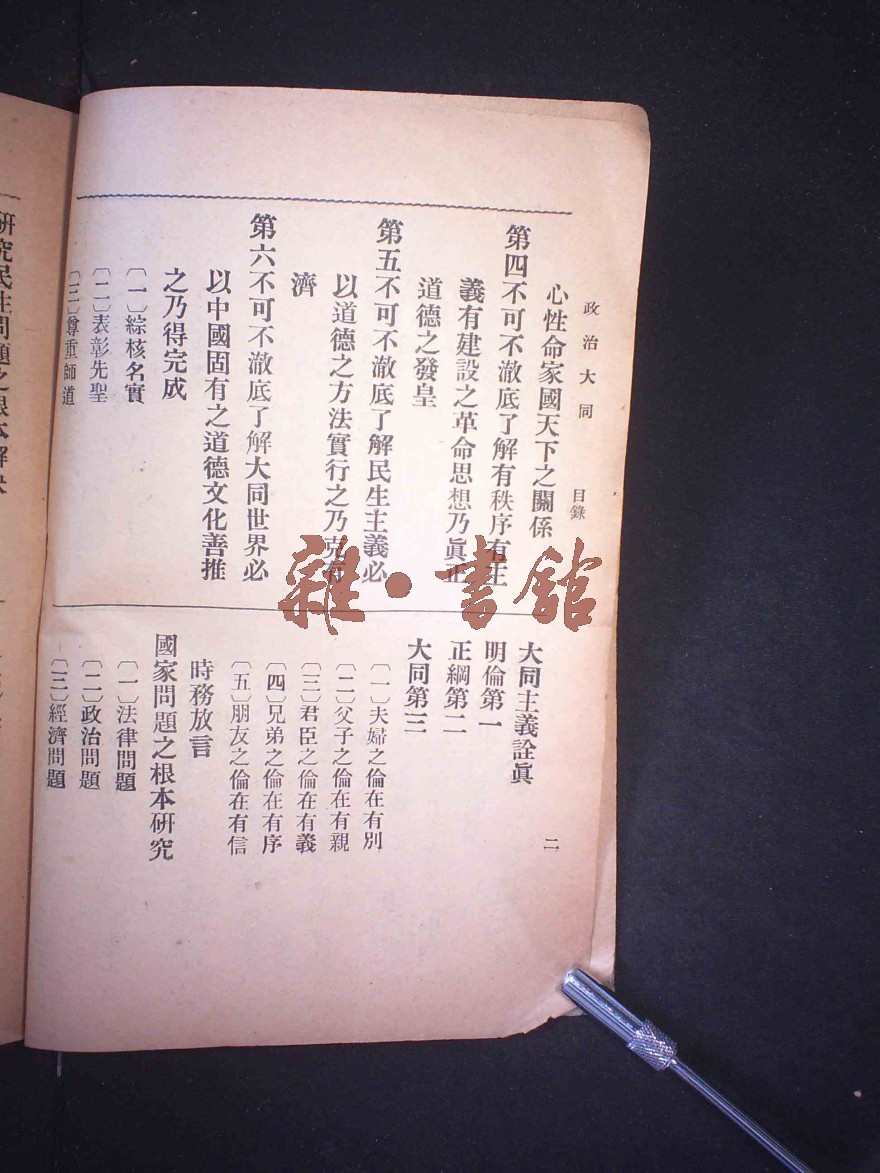 政治大同 目錄 二
心性命家國天下之關係
第四不可不澈底了解有秩序有主
義有建設之革命思想乃眞正
道德之發皇
第五不可不澈底了解民生主義必
以道德之方法實行之乃克有
濟
第六不可不澈底了解大同世界必
以中國固有之道德文化善推
之乃得完成
〔一〕綜核名實
〔二〕表彰先聖
〔三〕尊重師道
大同主義詮眞
明倫第一
正綱第二
大同第三
〔一〕夫婦之倫在有別
〔二〕父子之倫在有親
〔三〕君臣之倫在有義
〔四〕兄弟之倫在有序
〔五〕朋友之倫在有信
時務放言
國家問題之根本研究
〔一〕法律問題
〔二〕政治問題
〔三〕經濟問題
研究民生問題之根本解決
雜·書館